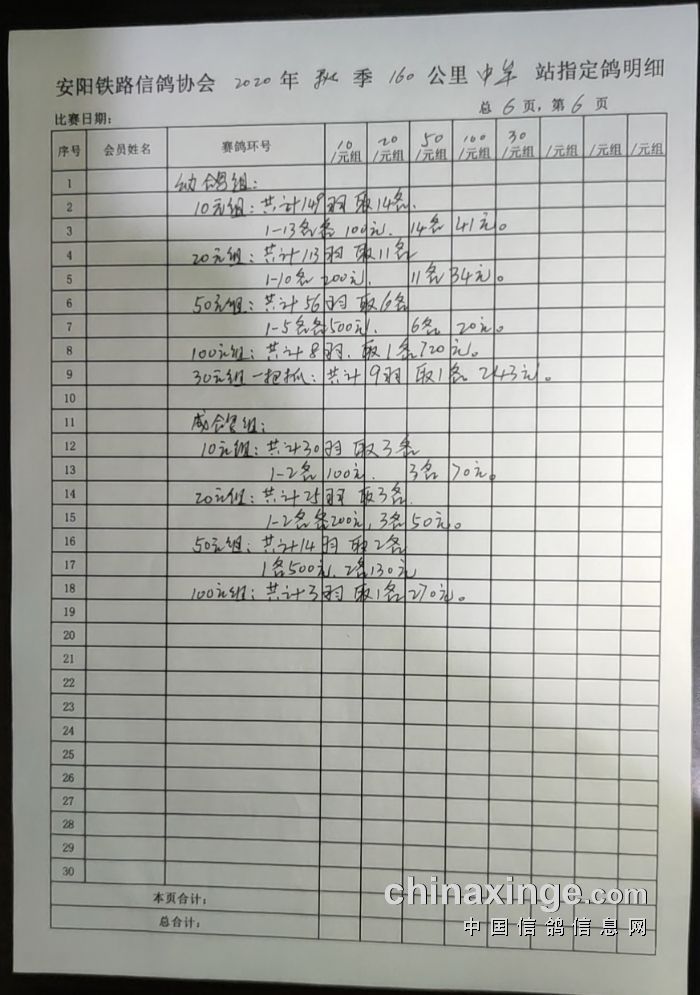 安阳铁路信鸽协会 2020 年 秋 季 160 公里 中牟 站指定鸽明细
比赛日期： 总 6 页，第 6 页
序号 会员姓名 赛鸽环号 10/元组 20/元组 50/元组 100/元组 30/元组 /元组 /元组 /元组
1 幼鸽组：
2 10元组：共计149羽 取14名.
3 1-13名各 100元. 14名 41元。
4 20元组：共计113羽 取11名
5 1-10名 200元. 11名 34元。
6 50元组：共计56羽 取6名
7 1-5名各500元. 6名 20元。
8 100元组：共计8羽. 取1名720元。
9 30元组一把抓：共计9羽 取1名 243元。
10
11 成鸽组：
12 10元组：共计30羽 取3名
13 1-2名 100元. 3名 70元。
14 20元组：共计25羽 取3名.
15 1-2名各200元, 3名50元。
16 50元组：共计14羽 取2名
17 1名500元. 2名130元
18 100元组：共计3羽 取1名270元。
19
20
21
22
23
24
25
26
27
28
29
30
本页合计：
总合计：
chinaxinge.com
中国信鸽信息网